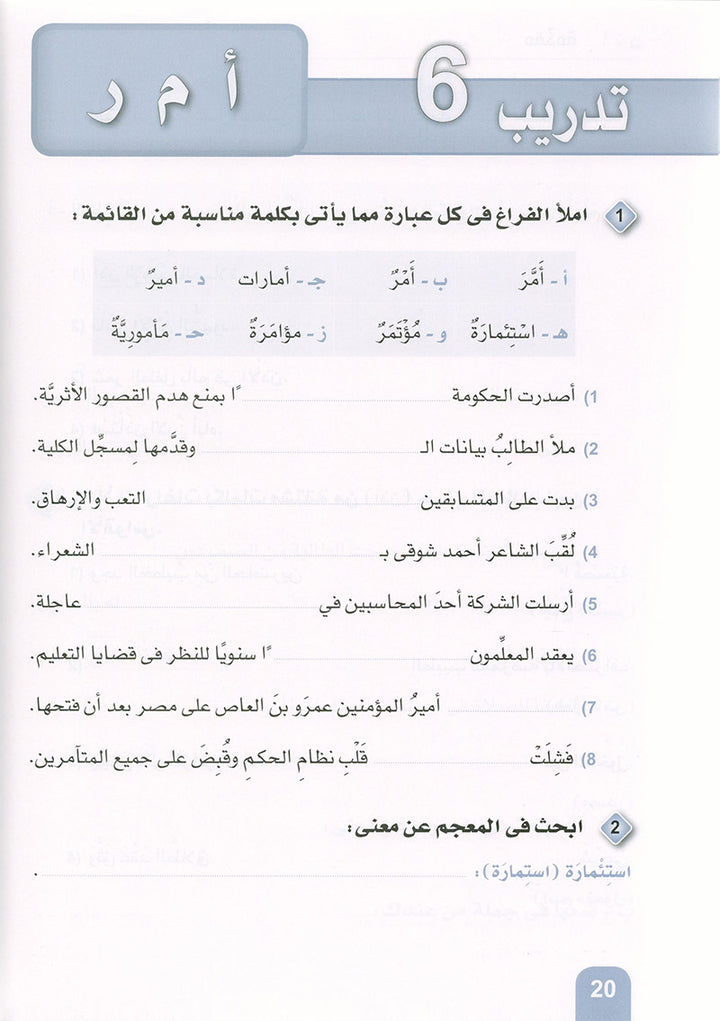 تدريب 6
أ م ر
1 املأ الفراغ فى كل عبارة مما يأتى بكلمة مناسبة من القائمة :
أ - أَمَّرَ ب - أَمْرٌ جـ - أمارات د - أميرٌ
هـ - اسْتِئمارَةٌ و - مُؤْتَمَرٌ ز - مؤامَرَةٌ حـ - مَأموريَّةٌ
1) أصدرت الحكومة ـًا بمنع هدم القصور الأثريَّة.
2) ملأ الطالِبُ بيانات الـ وقدَّمها لِمسجِّل الكلية.
3) بدت على المتسابقين التعب والإرهاق.
4) لُقِّبَ الشاعر أحمد شوقى بـ الشعراء.
5) أرسلت الشركة أحدَ المحاسبين في عاجلة.
6) يعقد المعلِّمون ـًا سنويًا للنظر فى قضايا التعليم.
7) أميرُ المؤمنين عمرَو بنَ العاص على مصر بعد أن فتحها.
8) فَشِلَتْ قَلْبِ نظامِ الحكمِ وقُبِضَ على جميع المتآمرين.
2 ابحث فى المعجم عن معنى:
استِئْمارَة (استِمارَة) :
20